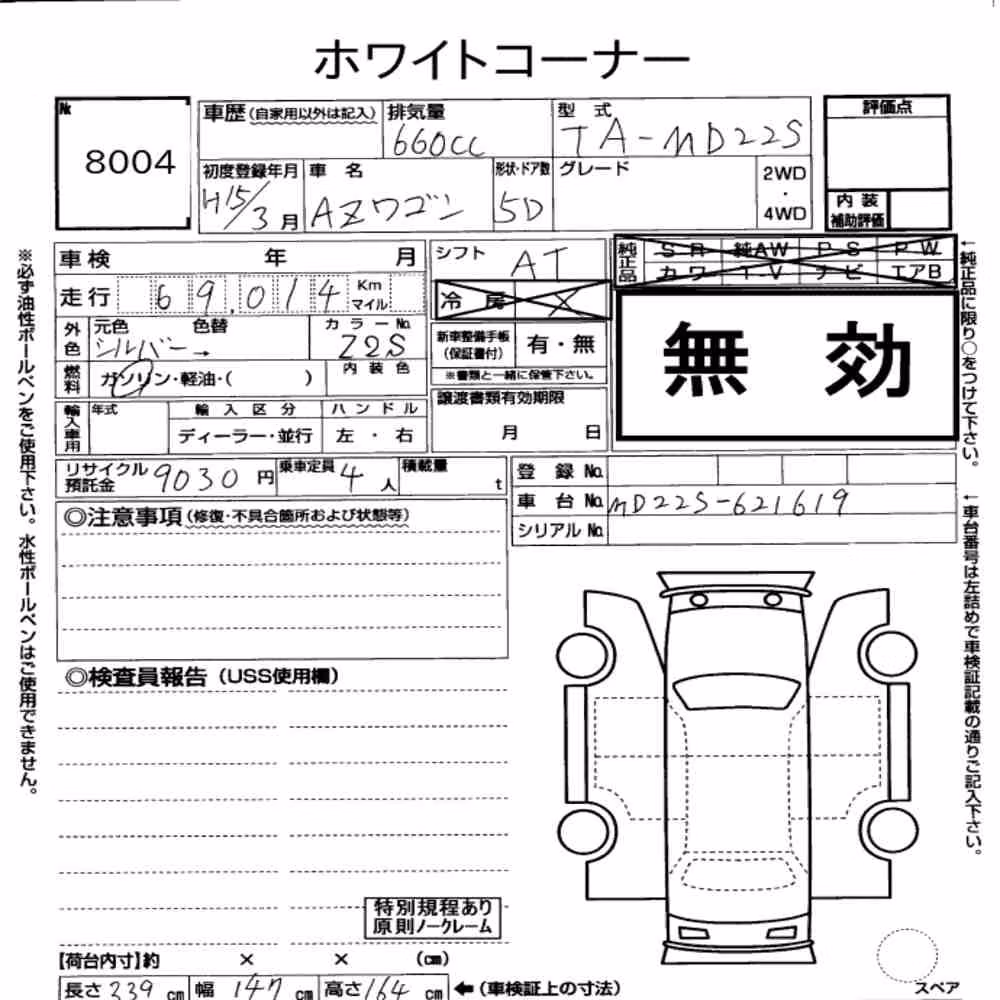 ホワイトコーナー
№
8004
車歴 (自家用以外は記入)
排気量
660cc
型式
TA-MD22S
評価点
初度登録年月
H15/3月
車名
AZワゴン
形状・ドア数
5D
グレード
2WD
・
4WD
内装
補助評価
車検 年 月
シフト
AT
純正品
SR 純AW PS PW
カワ TV ナビ エアB
走行 69,014 Km
マイル
冷房
無効
外色
元色 色替
シルバー→
カラーNo.
Z2S
新車整備手帳
(保証書付)
有・無
※書類と一緒に保管下さい。
燃料
ガソリン・軽油・( )
内装色
輸入車用
年式
輸入区分
ディーラー・並行
ハンドル
左・右
譲渡書類有効期限
月 日
リサイクル
預託金
9030円
乗車定員
4人
積載量
t
登録No.
車台No. MD22S-621619
シリアルNo.
◎注意事項 (修復・不具合箇所および状態等)
◎検査員報告 (USS使用欄)
特別規程あり
原則ノークレーム
【荷台内寸】約 × × (cm)
長さ 339 cm 幅 147 cm 高さ 164 cm ← (車検証上の寸法)
スペア
※必ず油性ボールペンをご使用下さい。水性ボールペンはご使用できません。
←純正品に限り○をつけて下さい。
←車台番号は左詰めで車検証記載の通りご記入下さい。